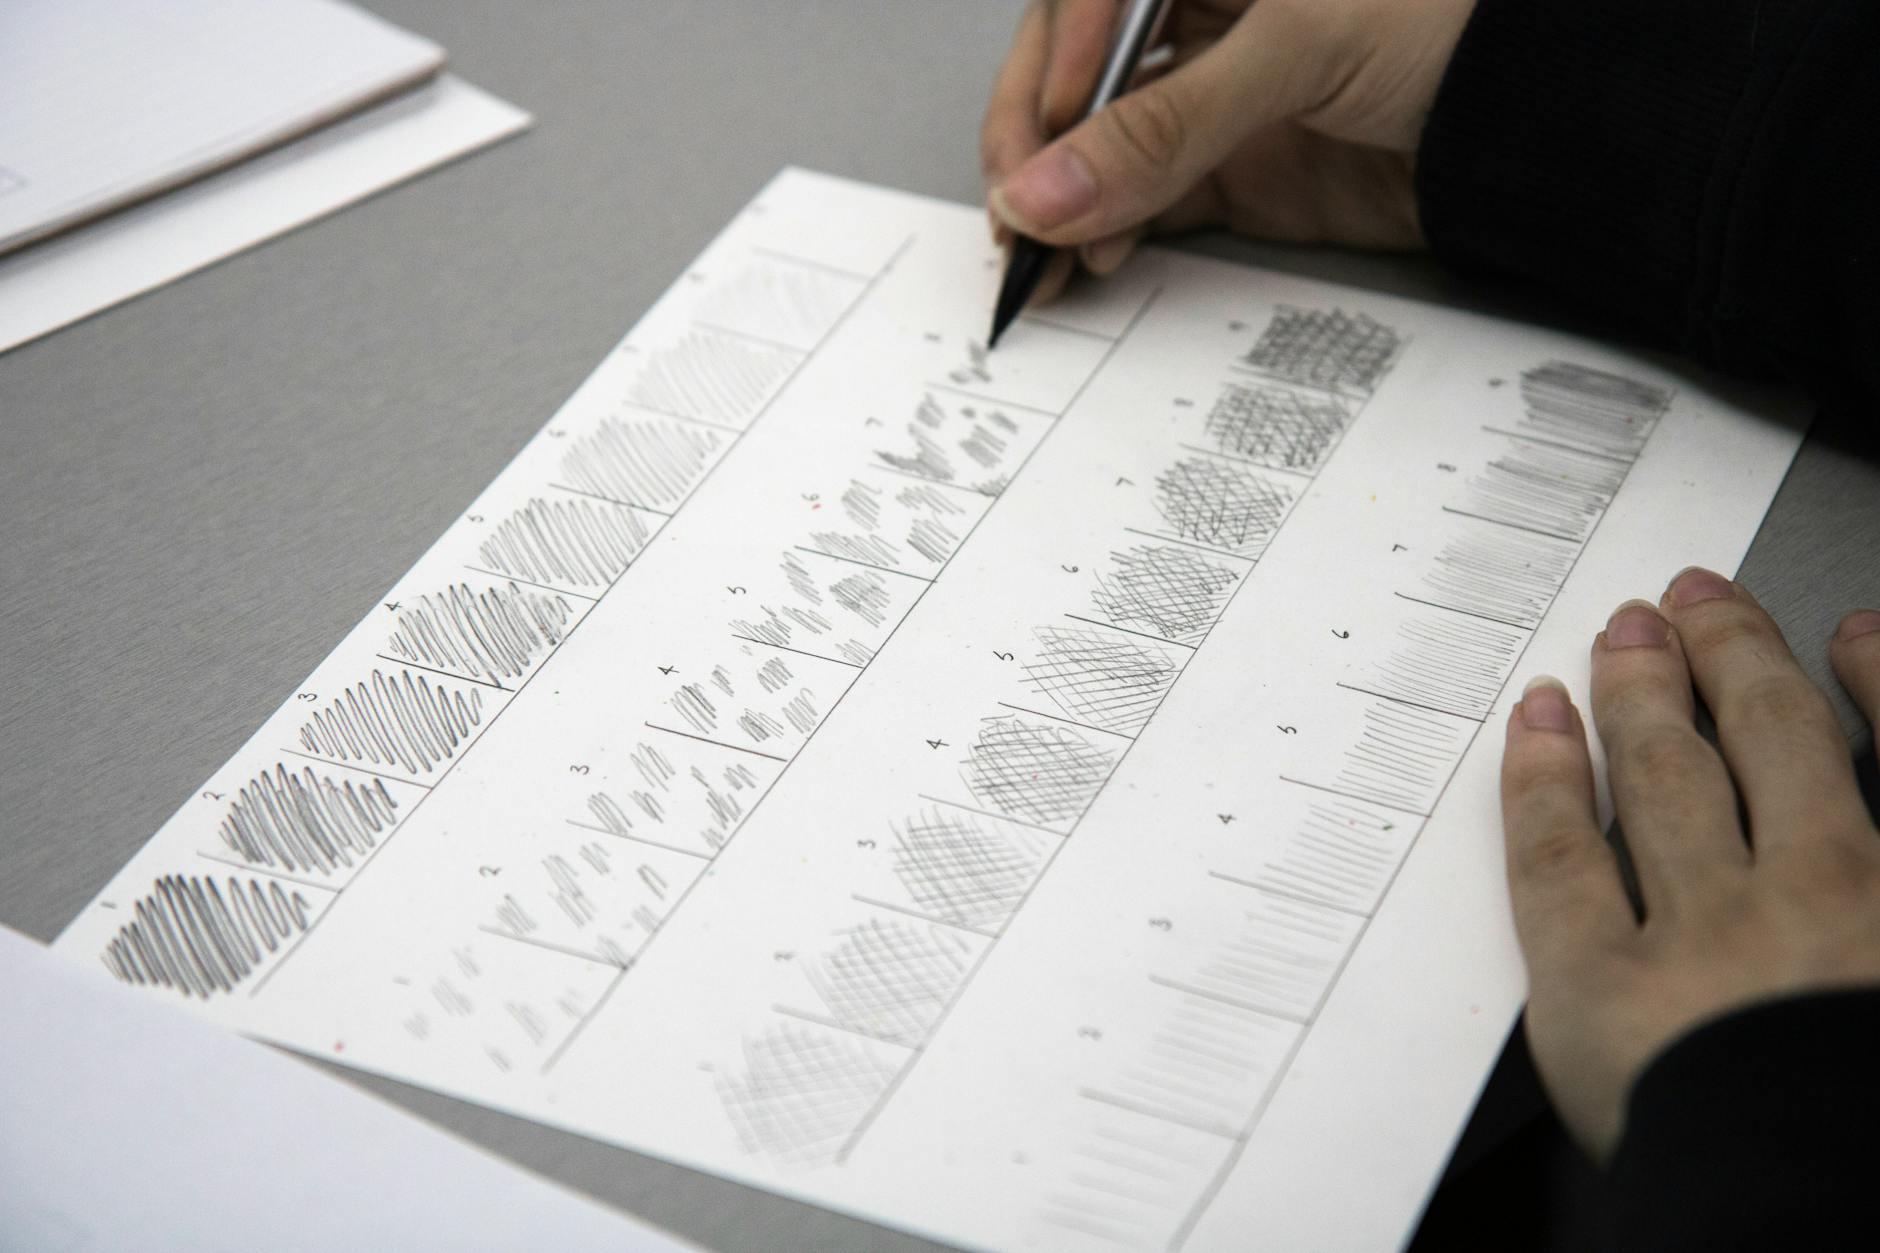 1 2 3 4 5 6 7
1 2 3 4 5 6 7 8
2 3 4 5 6 7 8 9
2 3 4 5 6 7 8 9